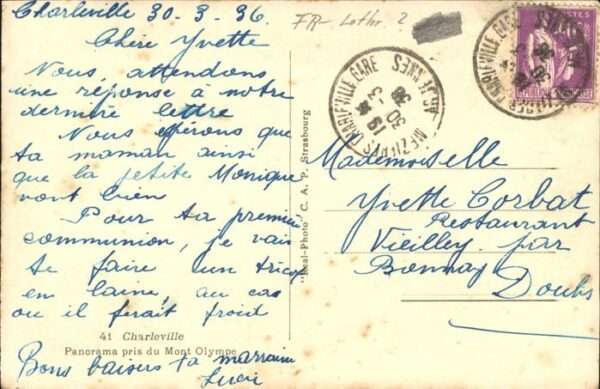 Charleville 30-3-36
FR- Lothr. 2
Chère Yvette
Nous, attendons
une réponse à notre
dernière lettre
Nous espérons que
ta maman ainsi
que la petite Monique
vont bien
Pour ta première
communion, je vais
te faire un tricot
en laine, au cas
ou il ferait froid
41 Charleville
Panorama pris du Mont Olympe
Bons baisers ta marraine
Lucie
"Real-Photo" C. A. P. Strasbourg
MEZIERES CHARLEVILLE GARE
ARDENNES
19
30 -3
36
POSTES
Mademoiselle
Yvette Corbat
Restaurant
Vieilley par
Bonnay
Doubs